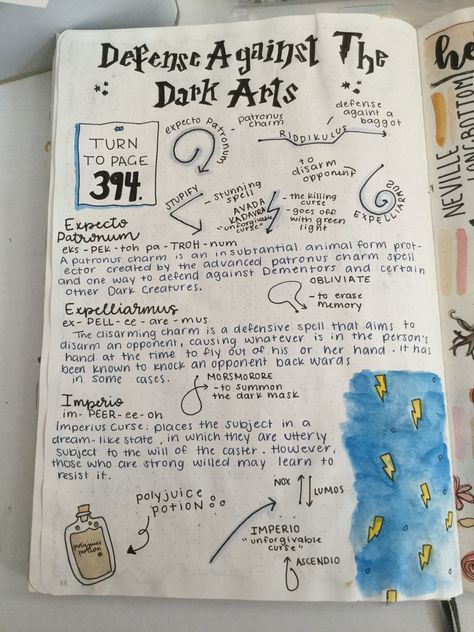 Defense Against The
Dark Arts
TURN
TO PAGE
394.
expecto patronum
- patronus
charm
RIDDIKULUS
defense
againt a
baggot
to
disarm
opponent
EXPELLIARMUS
STUPIFY
- stunning
spell
AVADA
KADAVRA
"unforgivable
curse"
- the killing
curse
- goes off
with green
light
Expecto
Patronum
eks - PEK - toh pa - TROH - num
A patronus charm is an insubstantial animal form prot-
ector created by the advanced patronus charm spell
and one way to defend against Dementors and certain
other Dark Creatures.
OBLIVIATE
- to erase
memory
Expelliarmus
ex - PELL - ee - are - mus
The disarming charm is a defensive spell that aims to
disarm an opponent, causing whatever is in the person's
hand at the time to fly out of his or her hand. It has
been known to knock an opponent back wards
in some cases.
MORSMORDRE
- to summon
the dark mask
Imperio
im - PEER - ee - oh
Imperius Curse: places the subject in a
dream-like state, in which they are utterly
subject to the will of the caster. However,
those who are strong willed may learn to
resist it.
polyjuice
potion
polyjuice
potion
NOX
LUMOS
IMPERIO
"unforgivable
curse"
ASCENDIO
88
NEVILLE
LONGBOTTOM
he